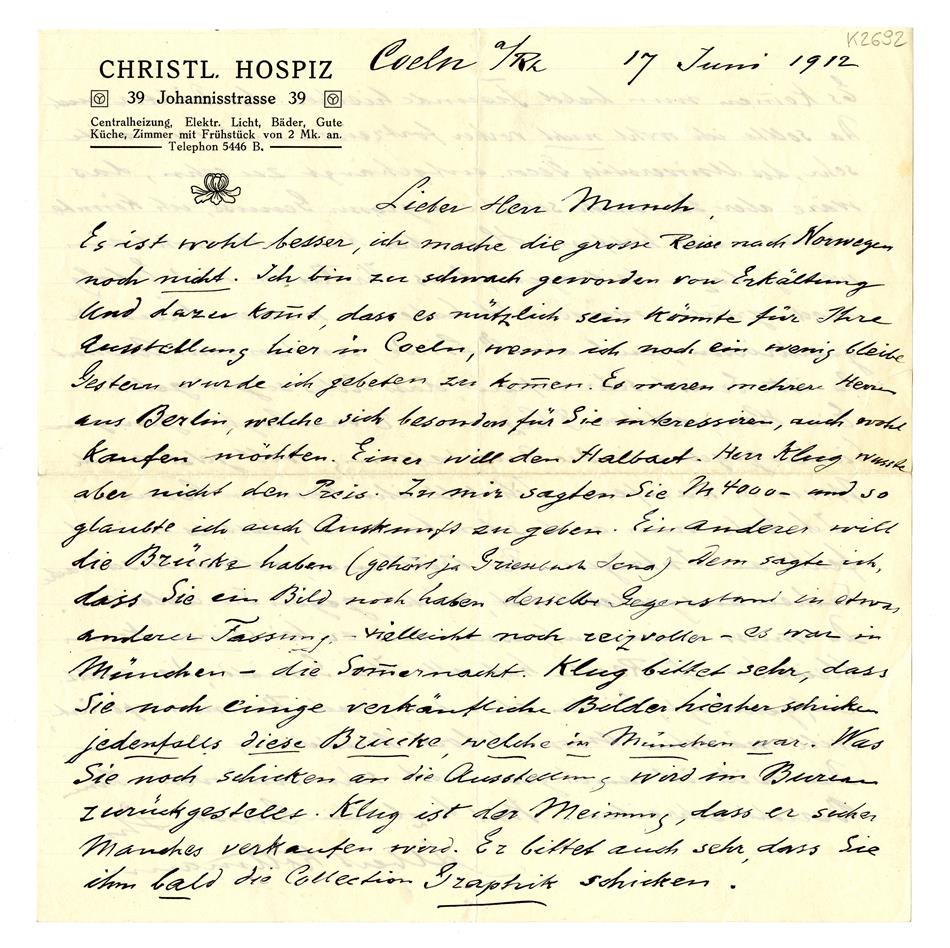 K2692
CHRISTL. HOSPIZ
39 Johannisstrasse 39
Centralheizung, Elektr. Licht, Bäder, Gute
Küche, Zimmer mit Frühstück von 2 Mk. an.
Telephon 5446 B.
Coeln a/Rh 17 Juni 1912
Lieber Herr Munch,
Es ist wohl besser, ich mache die grosse Reise nach Norwegen
noch nicht. Ich bin zu schwach geworden von Erkältung
Und dazu kom̅t, dass es nützlich sein könnte für Ihre
Ausstellung hier in Coeln, wenn ich noch ein wenig bleibe
Gestern wurde ich gebeten zu kom̅en. Es waren mehrer Herren
aus Berlin, welche sich besonders für Sie interessiren, auch wohl
kaufen möchten. Einer will den Halbact. Herr Klug wusste
aber nicht den Preis. Zu mir sagten Sie M 4000– und so
glaubte ich auch Auskunft zu geben. Ein anderer will
die Brücke haben (gehört ja Griesebach Jena) Dem sagte ich,
dass Sie ein Bild noch haben derselbe Gegenstand in etwas
anderer Fassung, – vielleicht noch reizvoller – es war in
München – die Som̅ernacht. Klug bittet sehr, dass
Sie noch einige verkäufliche Bilder hierher schicken
jedenfalls diese Brücke, welche in München war. Was
Sie noch schicken an die Ausstellung wird im Bureau
zurückgestellt. Klug ist der Meinung, dass er sicher
Manches verkaufen wird. Er bittet auch sehr, dass Sie
ihm bald die Collection Graphik schicken.